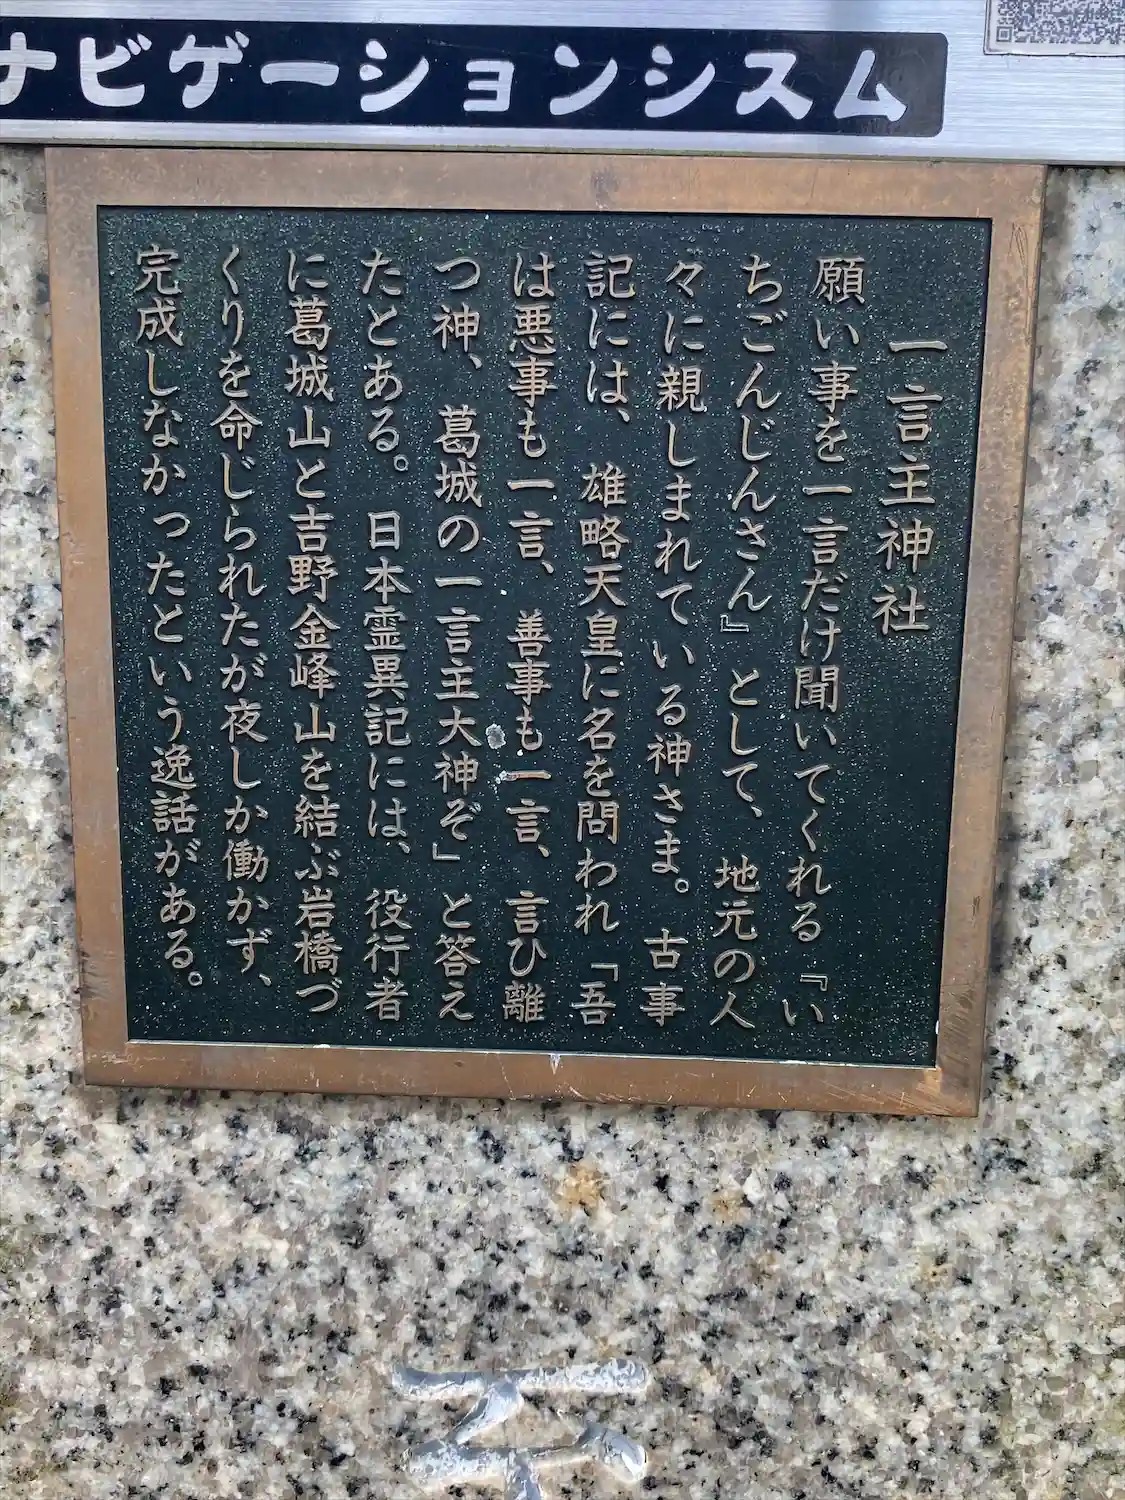 ナビゲーションシスム
一言主神社
願い事を一言だけ聞いてくれる『い
ちごんじんさん』として、地元の人
々に親しまれている神さま。古事
記には、雄略天皇に名を問われ「吾
は悪事も一言、善事も一言、言ひ離
つ神、葛城の一言主大神ぞ」と答え
たとある。日本霊異記には、役行者
に葛城山と吉野金峰山を結ぶ岩橋づ
くりを命じられたが夜しか働かず、
完成しなかったという逸話がある。